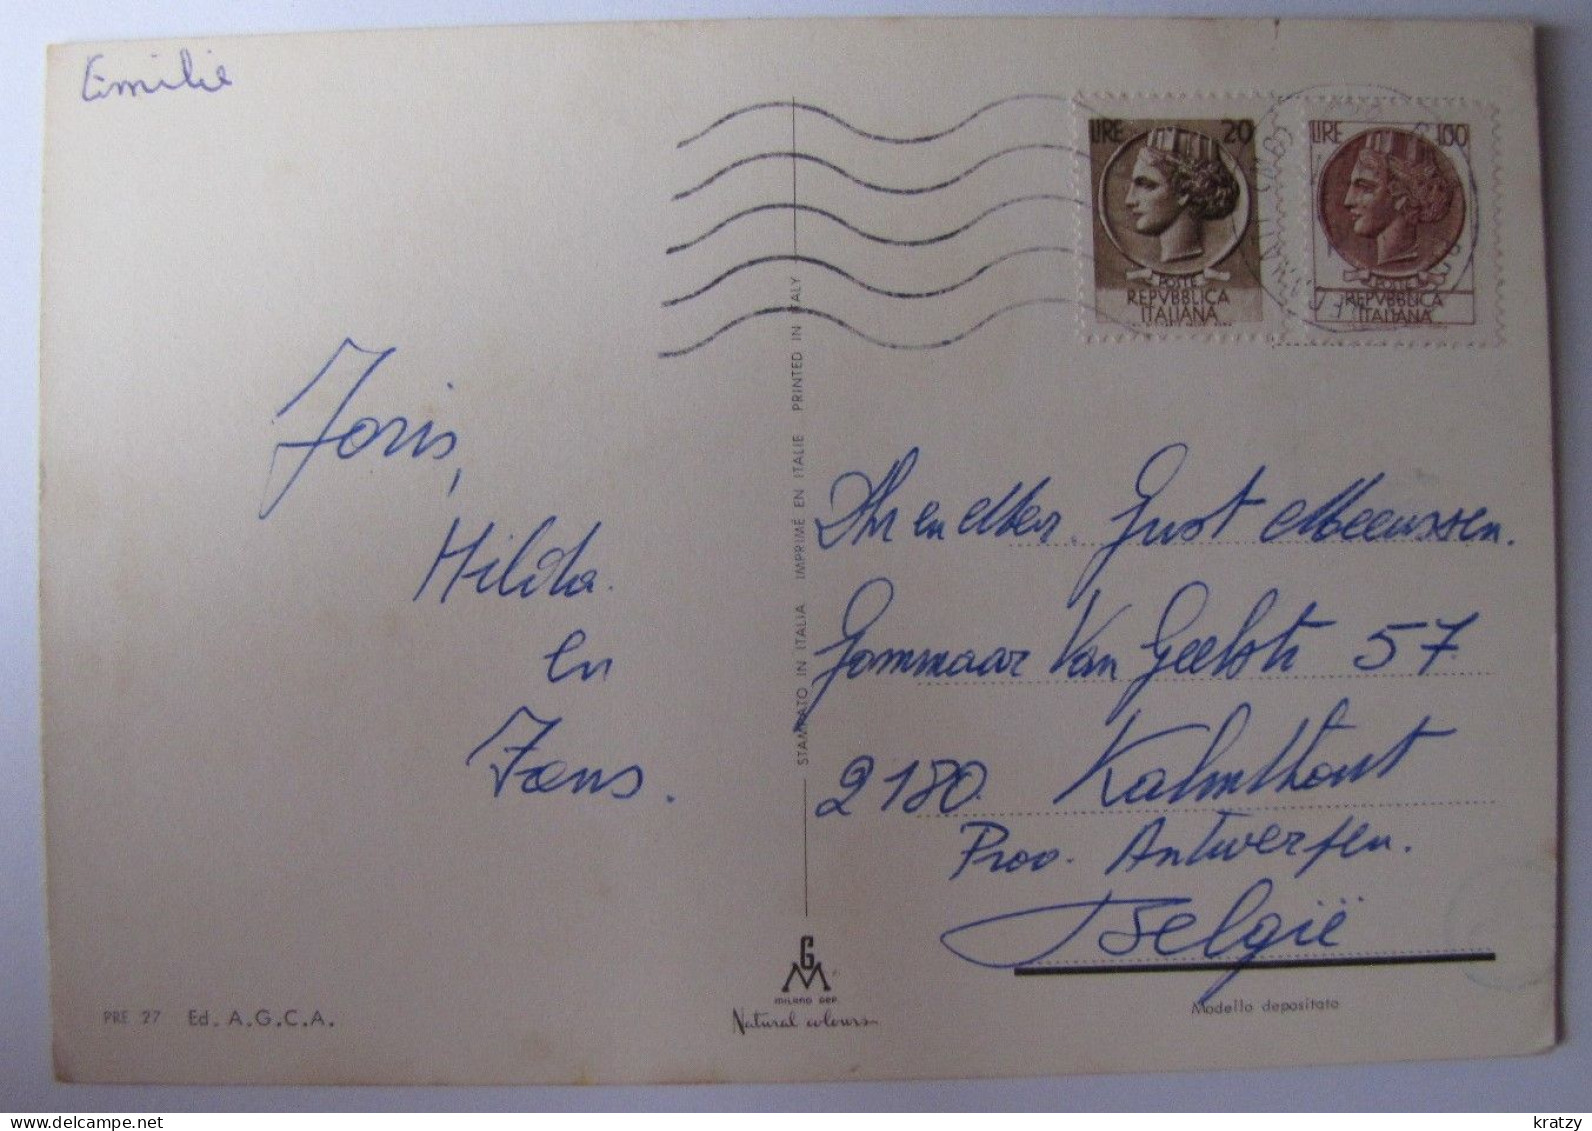 Emilie
LIRE 20
POSTE
REPVBBLICA
ITALIANA
LIRE 100
POSTE
REPVBBLICA
ITALIANA
Joris,
Hilda.
en
Jans.
STAMPATO IN ITALIA IMPRIMÉ EN ITALIE PRINTED IN ITALY
Dhr en Mevr. Just Meeussen.
Gommaar Van Geelstr 57
2180. Kalmthout
Prov. Antwerpen.
België
GM
MILANO DEP.
Natural colours
Modello depositato
PRE 27 Ed. A.G.C.A.
kratzy